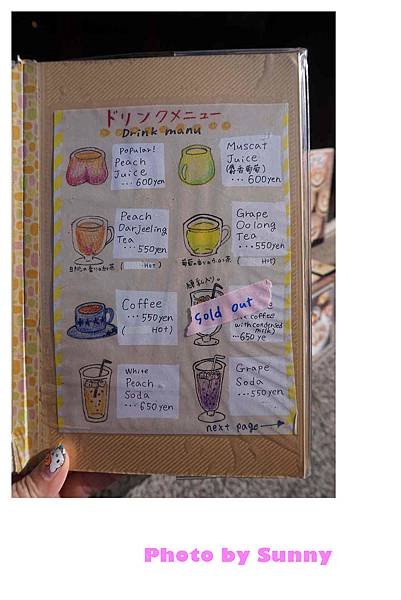 ドリンクメニュー
Drink manu
Popular!
Peach
Juice
...600yen
Muscat
Juice
(麝香葡萄)
...600yen
Peach
Darjeeling
Tea
...550yen
( Hot)
Grape
Oolong
Tea
...550yen
( Hot)
Coffee
...550yen
( Hot)
練乳入り
Sold out
coffee
with condensed
milk)
...650ye
White
Peach
Soda
...650yen
Grape
Soda
...550yen
next page →
Photo by Sunny